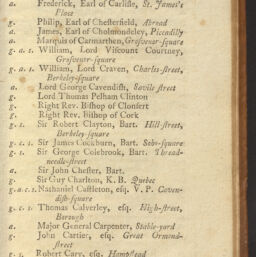 a. Frederick, Earl of Carlisle, St. James's
Place
g. Philip, Earl of Chesterfield, Abroad
a. James, Earl of Cholmondeley, Piccadilly
a. Marquis of Carmarthen, Grosvenor-square
g. a. 1. William, Lord Viscount Courtney,
Grosvenor-square
g. a. 1. William, Lord Craven, Charles-street,
Berkeley-square
a. Lord George Cavendish, Savile street
g. Lord Thomas Pelham Clinton
g. Right Rev. Bishop of Clonfert
g. Right Rev. Bishop of Cork
g. 1. Sir Robert Clayton, Bart. Hill-street,
Berkeley-square
g. c. 1. Sir James Cockburn, Bart. Soho-square
g. 1. Sir George Colebrook, Bart. Thread-
needle-street
a. Sir John Chester, Bart.
g. Sir Guy Charlton, K. B. Quebec
g. a. c. 1. Nathaniel Castleton, esq. V. P. Caven-
dish-square
g. c. 1. Thomas Calverley, esq. High-street,
Borough
a. Major General Carpenter, Stable-yard
g. John Cartier, esq. Great Ormond-
street
g. 1. Robert Cary, esq. Hampstead